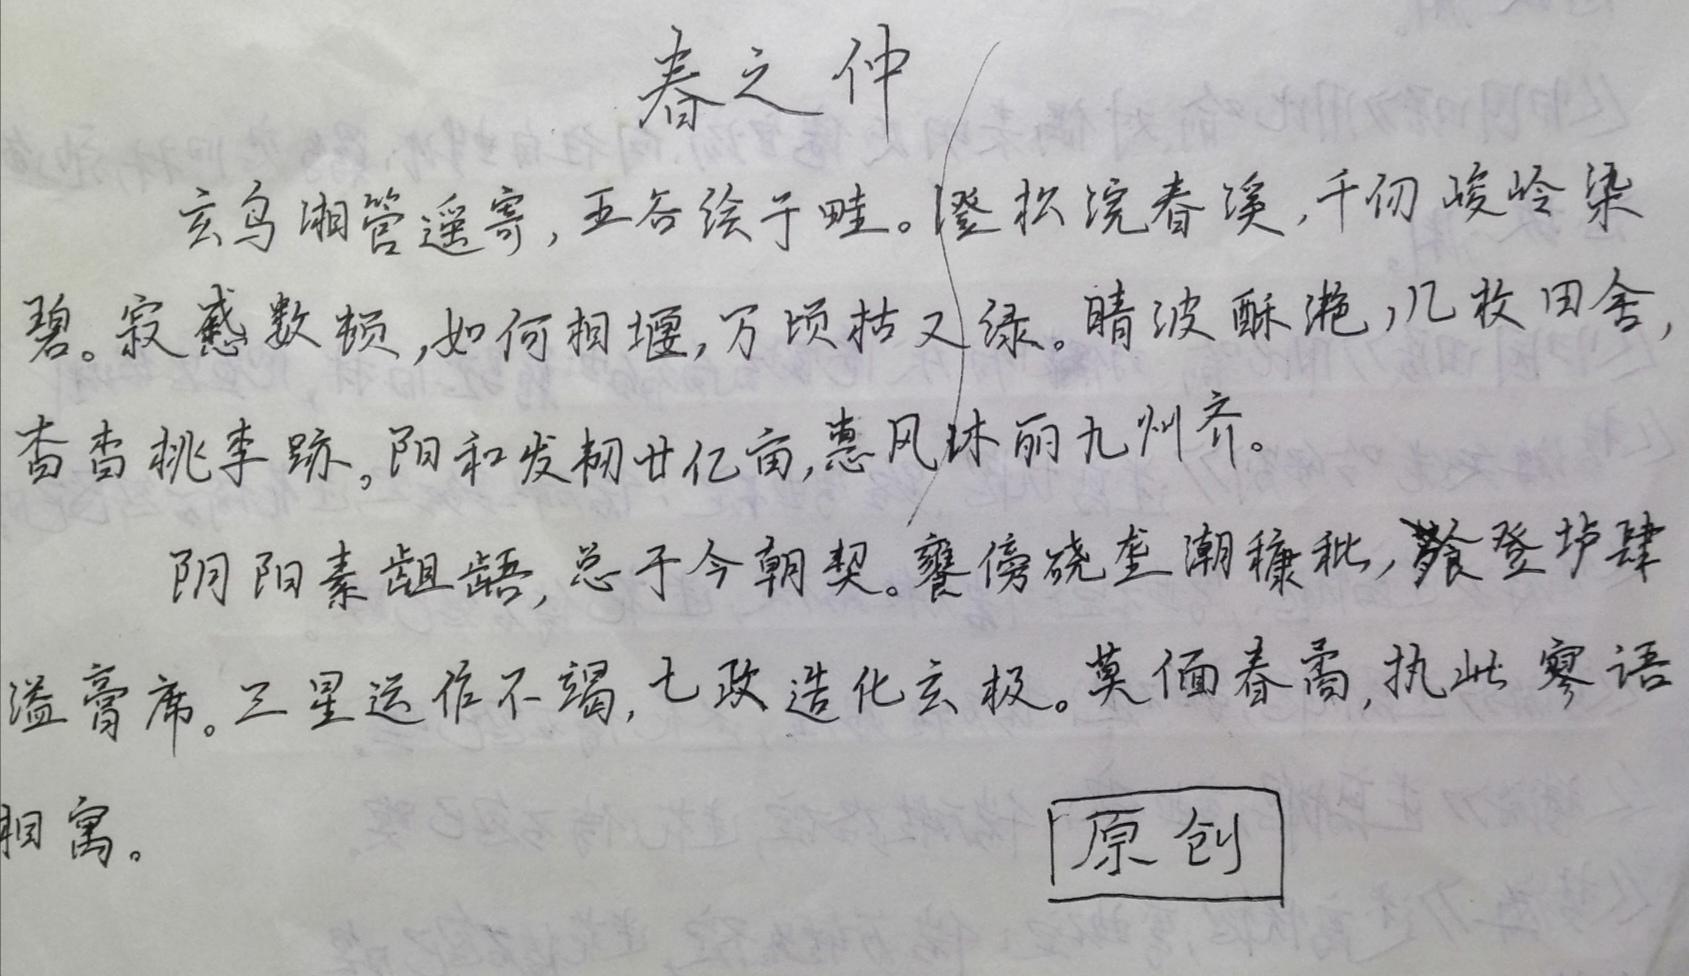 春之仲
玄鸟湘管遥寄,五谷绘于畦。澄松浣春溪,千仞峻岭染
碧。寂感数顿,如何相堰,万顷枯又绿。晴波酥滟,几枚田舍,
杳杳桃李跡。阳和发轫廿亿亩,惠风沐丽九州齐。
阴阳素龃龉,总于今朝契。饔傍硗垄潮糠秕,飧登垆肆
溢膏席。三星运作不竭,七政造化玄极。莫偭春矞,执此寥语
相寓。
原创